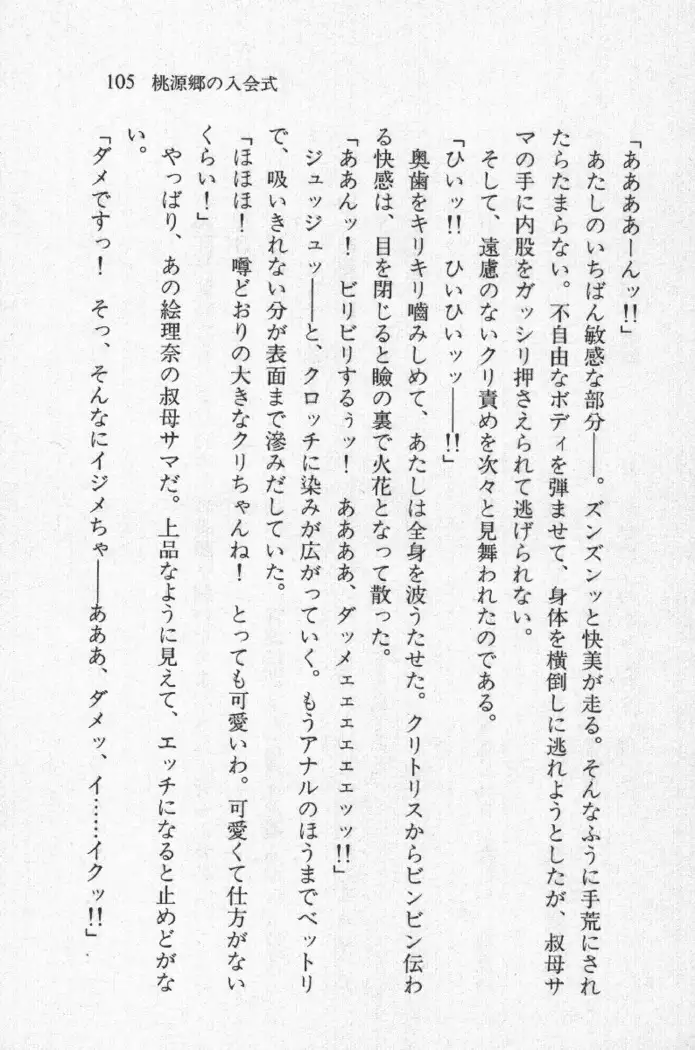 105 桃源郷の入会式
「ああああーんッ!!」
あたしのいちばん敏感な部分――。ズンズンッと快美が走る。そんなふうに手荒にされ
たらたまらない。不自由なボディを弾ませて、身体を横倒しに逃れようとしたが、叔母サ
マの手に内股をガッシリ押さえられて逃げられない。
そして、遠慮のないクリ責めを次々と見舞われたのである。
「ひいッ!! ひいひいッッ――!!」
奥歯をキリキリ嚙みしめて、あたしは全身を波うたせた。クリトリスからビンビン伝わ
る快感は、目を閉じると瞼の裏で火花となって散った。
「ああんッ! ビリビリするぅッ! ああああ、ダッメェェェェェッッ!!」
ジュッジュッ――と、クロッチに染みが広がっていく。もうアナルのほうまでベットリ
で、吸いきれない分が表面まで滲みだしていた。
「ほほほ! 噂どおりの大きなクリちゃんね! とっても可愛いわ。可愛くて仕方がない
くらい!」
やっぱり、あの絵理奈の叔母サマだ。上品なように見えて、エッチになると止めどがな
い。
「ダメですっ! そっ、そんなにイジメちゃ――あああ、ダメッ、イ……イクッ!!」